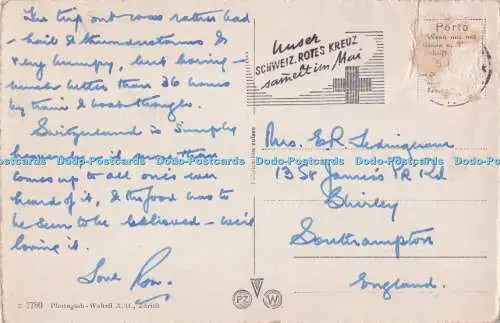 The trip out was rather bad
- hail & thunderstorms &
very bumpy, but boring -
much better than 36 hours
by train & boat though.
Switzerland is simply
heavenly - it more than
comes up to all one's ever
heard of it, & the food has to
be seen to be believed - we're
loving it.
Love Ron.
Z 2780 Photoglob-Wehrli A.G., Zürich
Unser
SCHWEIZ. ROTES KREUZ
sammelt im Mai
Porto
Wenn nur mit
Mrs. E R Ledingham
13 St James's Pk Rd
Shirley
Southampton
England.
PZ W
Dade Postcards